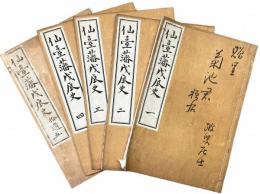 仙臺藩戊辰史 一
仙臺藩戊辰史 二
仙臺藩戊辰史 三
仙臺藩戊辰史 四
仙臺藩戊辰史
菊池君